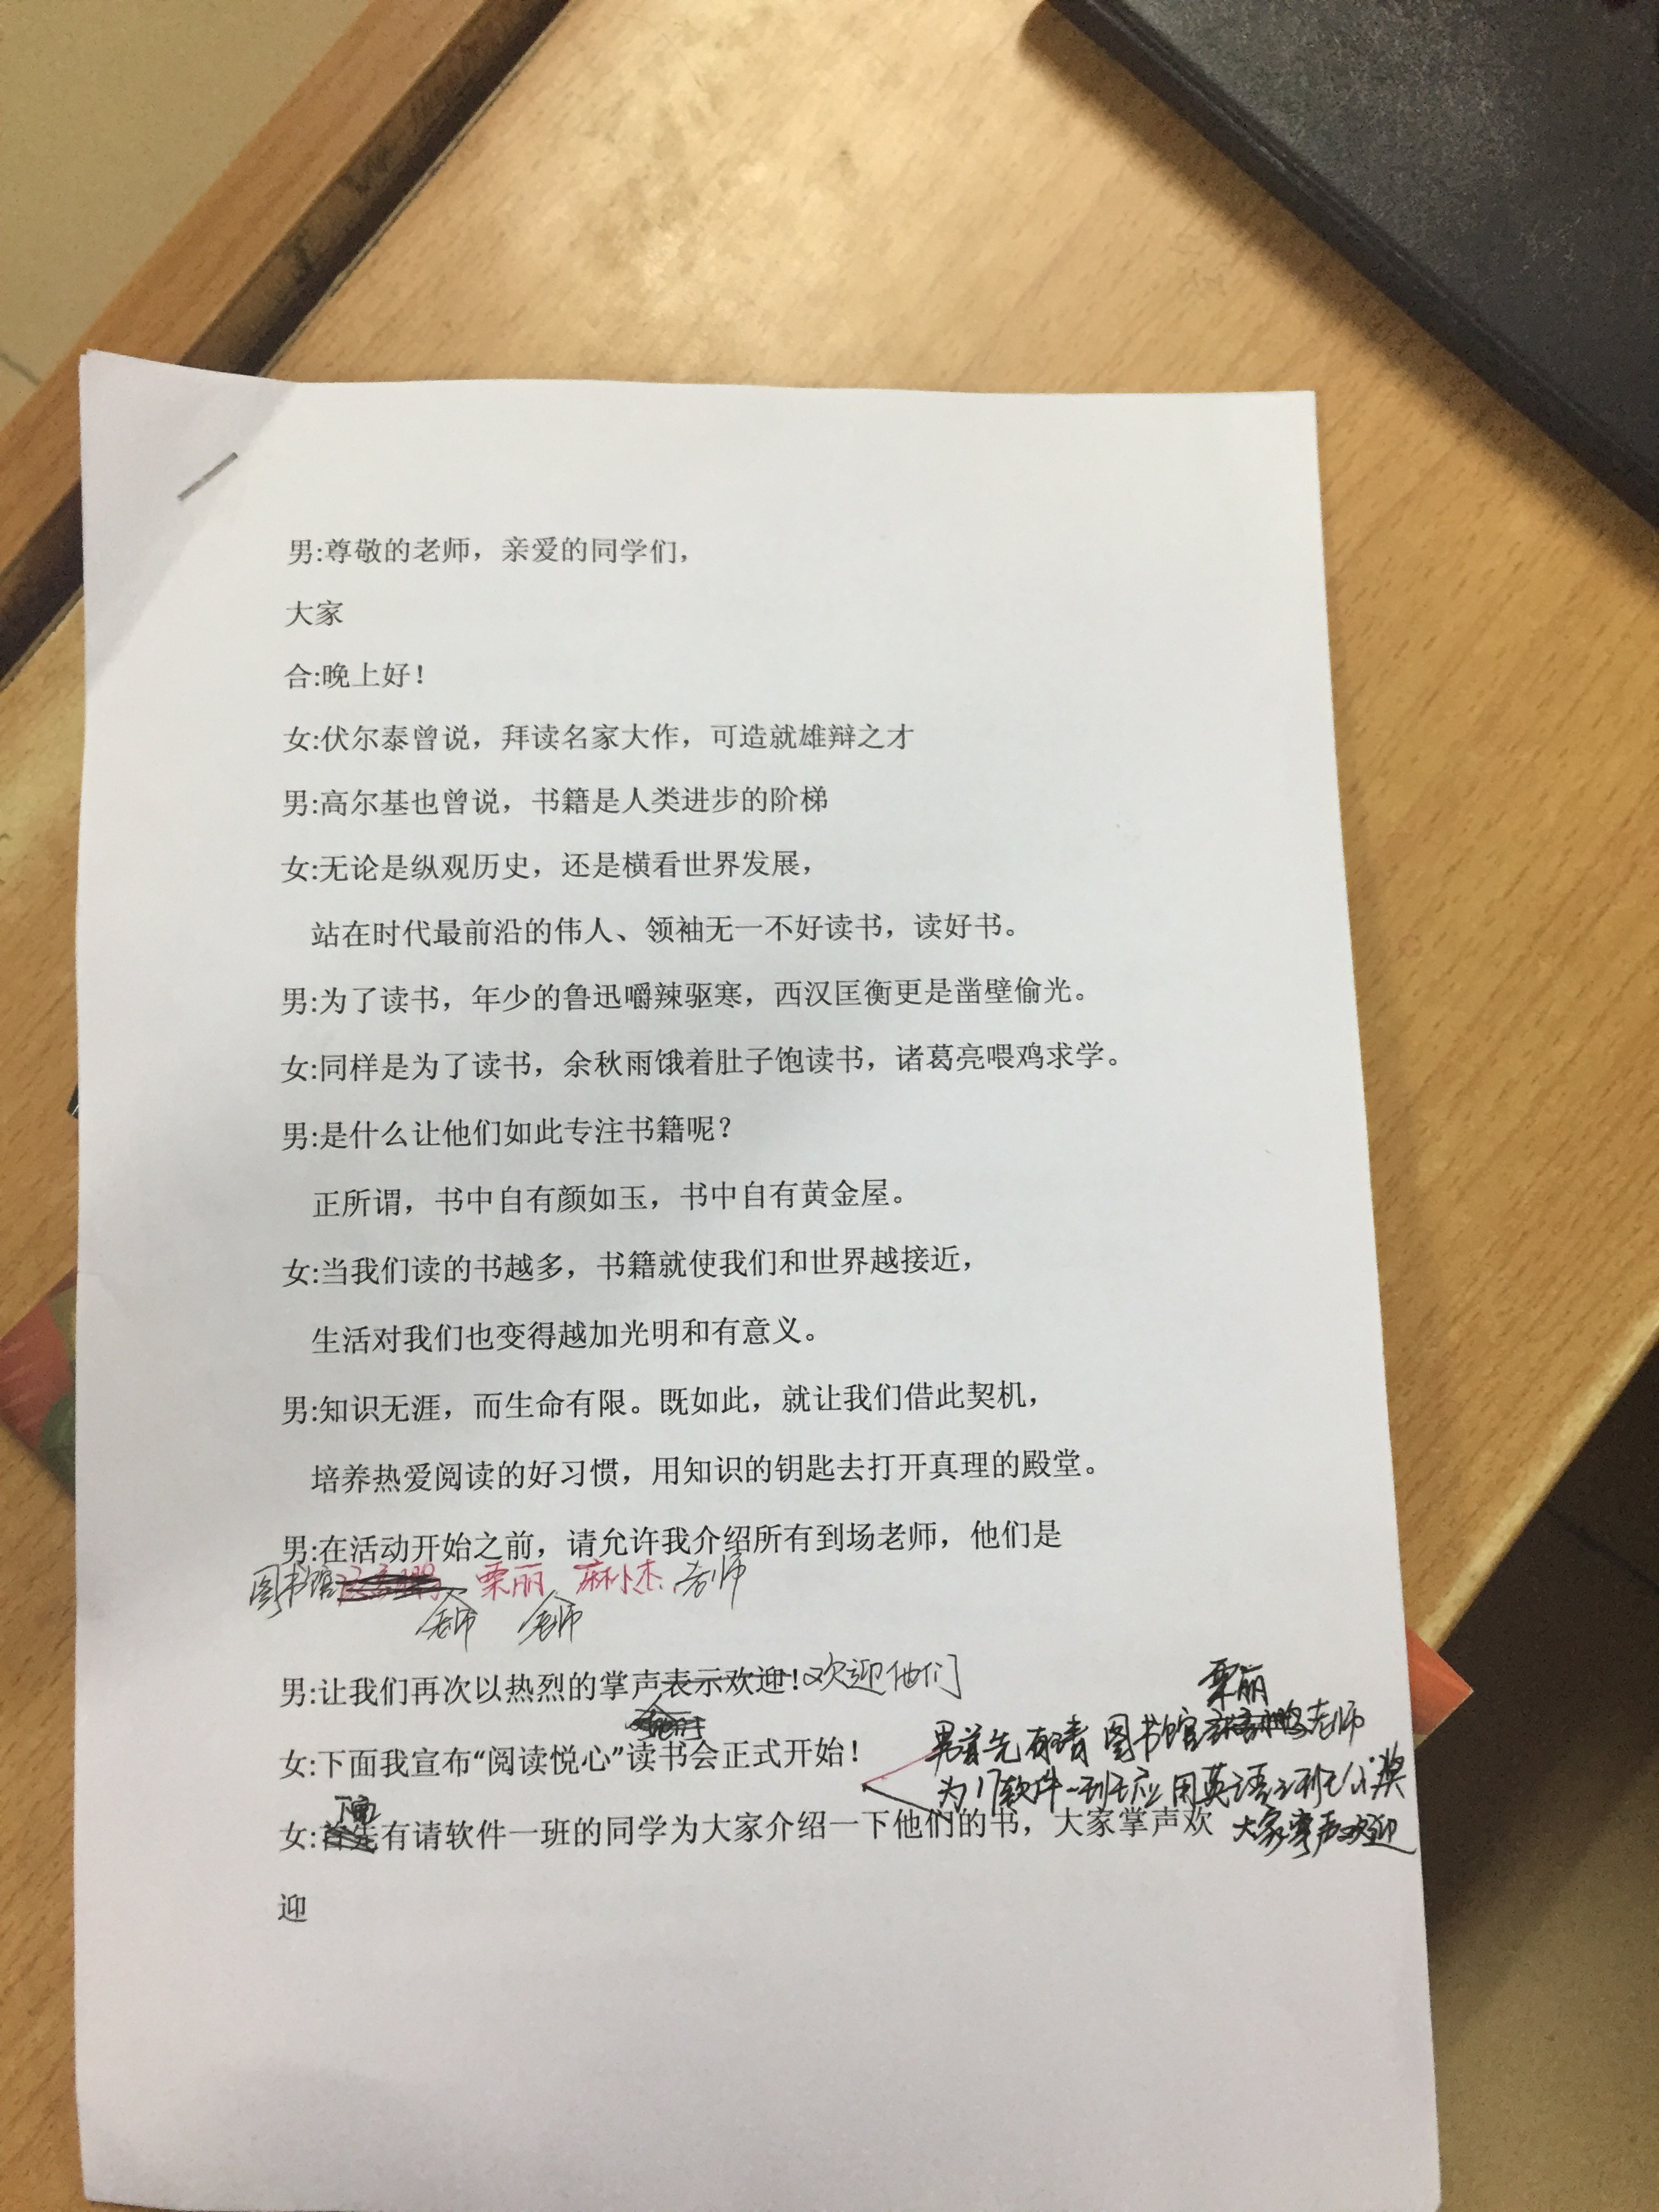 男:尊敬的老师，亲爱的同学们，
大家
合:晚上好！
女:伏尔泰曾说，拜读名家大作，可造就雄辩之才
男:高尔基也曾说，书籍是人类进步的阶梯
女:无论是纵观历史，还是横看世界发展，
站在时代最前沿的伟人、领袖无一不好读书，读好书。
男:为了读书，年少的鲁迅嚼辣驱寒，西汉匡衡更是凿壁偷光。
女:同样是为了读书，余秋雨饿着肚子饱读书，诸葛亮喂鸡求学。
男:是什么让他们如此专注书籍呢？
正所谓，书中自有颜如玉，书中自有黄金屋。
女:当我们读的书越多，书籍就使我们和世界越接近，
生活对我们也变得越加光明和有意义。
男:知识无涯，而生命有限。既如此，就让我们借此契机，
培养热爱阅读的好习惯，用知识的钥匙去打开真理的殿堂。
男:在活动开始之前，请允许我介绍所有到场老师，他们是
图书馆 栗丽 麻小杰 老师
老师 老师
男:让我们再次以热烈的掌声表示欢迎！欢迎他们
栗丽
男首先有请 图书馆 老师
女:下面我宣布“阅读悦心”读书会正式开始！
为17软件一班应用英语2班颁奖
下面
女:首先有请软件一班的同学为大家介绍一下他们的书，大家掌声欢
大家掌声欢迎
迎